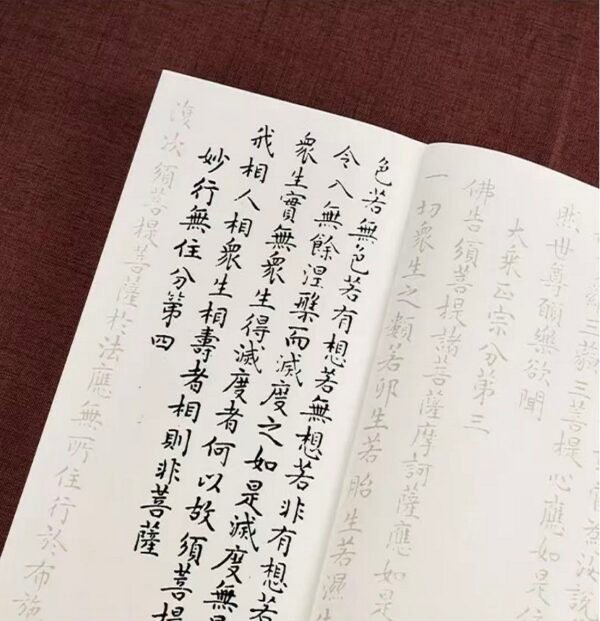 為汝說
三藐三菩提心應如是住
然世尊願樂欲聞
大乘正宗分第三
佛告須菩提諸菩薩摩訶薩應如是
一切衆生之類若卵生若胎生若濕生
色若無色若有想若無想若非有想若
令入無餘涅槃而滅度之如是滅度無
衆生實無衆生得滅度者何以故須菩提
我相人相衆生相壽者相則非菩薩
妙行無住分第四
復次須菩提菩薩於法應無所住行於布施